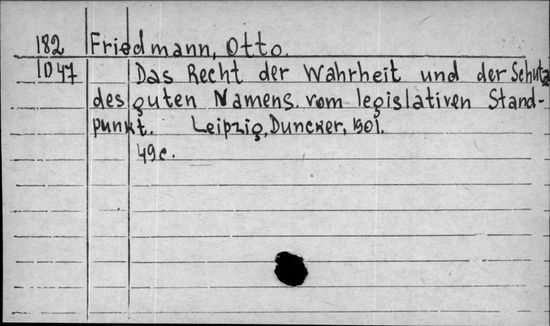 182 Friedmann, Otto.
1D47 Das Recht der Wahrheit und der Schutz
des guten Namens vom legislativen Stand-
punkt. Leipzig, Duncker, 1901.
49c.